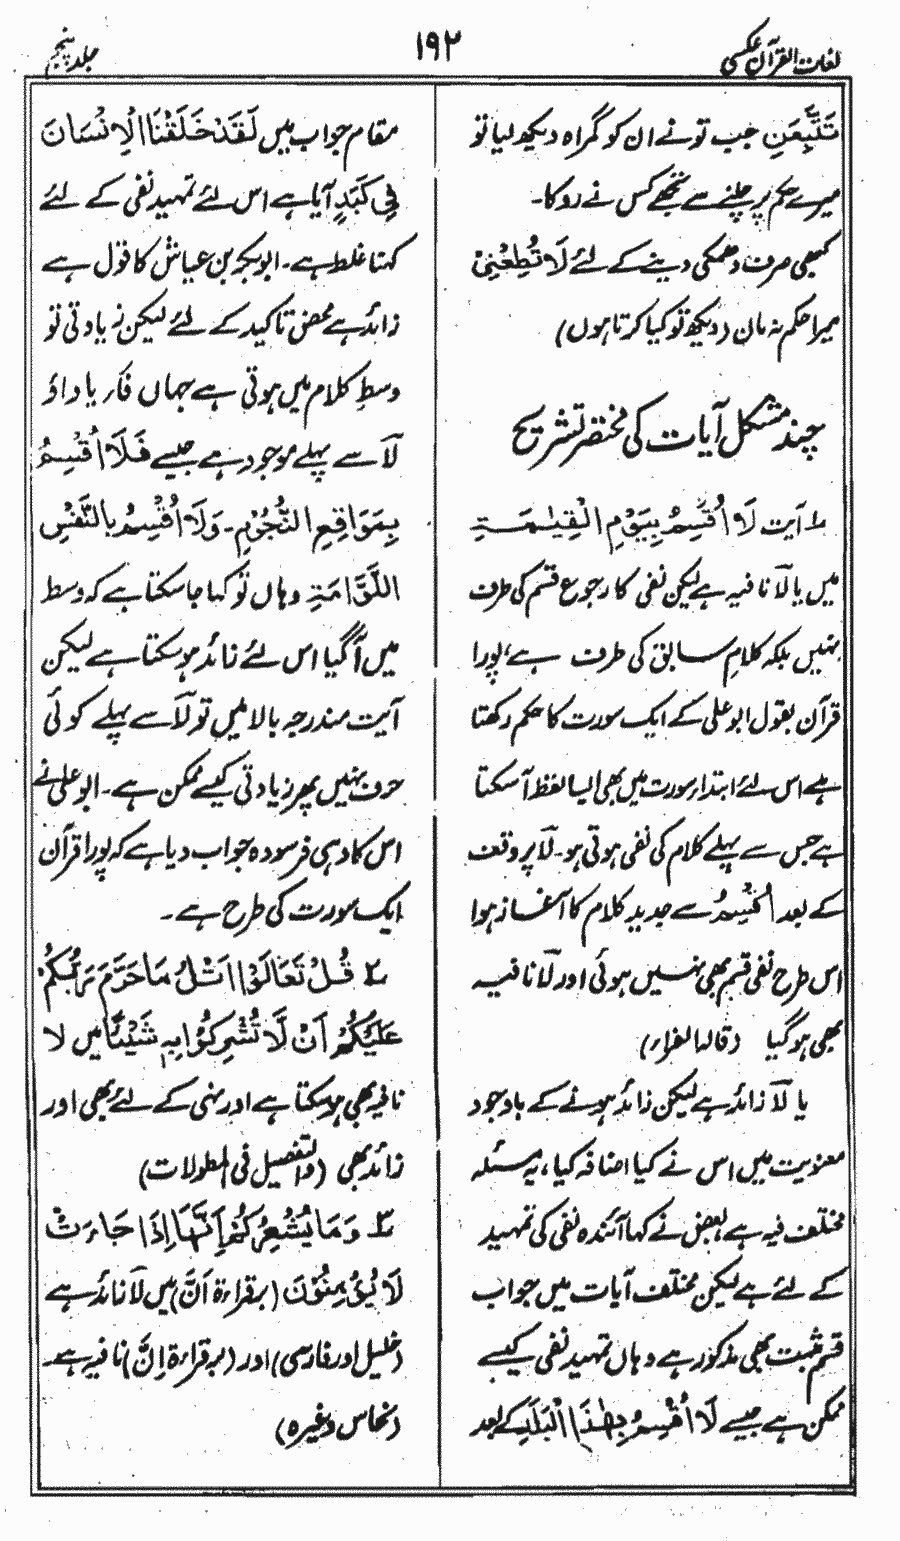 لغات القرآن عکسی
۱۹۲
جلد پنجم
تَتَّبِعَنِ جب تو نے ان کو گمراہ دیکھ لیا تو
میرے حکم پر چلنے سے تجھے کس نے روکا۔
کبھی صرف دھمکی دینے کے لئے لَا تُطِعْنِیْ
میرا حکم نہ مان (دیکھ تو کیا کرتا ہوں)
چند مشکل آیات کی مختصر تشریح
۱ آیت لَا اُقْسِمُ بِیَوْمِ الْقِیٰمَۃِ
میں یا لَا نافیہ ہے لیکن نفی کا رجوع قسم کی طرف
نہیں بلکہ کلامِ سابق کی طرف ہے، پورا
قرآن بقول ابو علی کے ایک سورت کا حکم رکھتا
ہے اس لئے ابتداء سورت میں بھی ایسا لفظ آ سکتا
ہے جس سے پہلے کلام کی نفی ہوتی ہو۔ لَا پر وقف
کے بعد اُقْسِمُ سے جدید کلام کا آغاز ہوا
اس طرح نفی قسم بھی نہیں ہوئی اور لَا نافیہ
بھی ہو گیا (قالہا الفراء)
یا لَا زائد ہے لیکن زائد ہونے کے باوجود
معنویت میں اس نے کیا اضافہ کیا، یہ مسئلہ
مختلف فیہ ہے بعض نے کہا آئندہ نفی کی تمہید
کے لئے ہے لیکن مختلف آیات میں جواب
قسم مثبت بھی مذکور ہے وہاں تمہید نفی کیسے
ممکن ہے جیسے لَا اُقْسِمُ بِھٰذَا الْبَلَدِ کے بعد
مقام جواب میں لَقَدْ خَلَقْنَا الْاِنْسَانَ
فِیْ کَبَدٍ آیا ہے اس لئے تمہید نفی کے لئے
کہنا غلط ہے۔ ابوبکر بن عیاش کا قول ہے
زائد ہے محض تاکید کے لئے لیکن زیادتی تو
وسطِ کلام میں ہوتی ہے جہاں فاء یا واؤ
لَا سے پہلے موجود ہے جیسے فَلَا اُقْسِمُ
بِمَوَاقِعِ النُّجُوْمِ۔ وَلَا اُقْسِمُ بِالنَّفْسِ
اللَّوَّامَۃِ وہاں تو کہا جا سکتا ہے کہ وسط
میں آ گیا اس لئے زائد ہو سکتا ہے لیکن
آیت مندرجہ بالا میں تو لَا سے پہلے کوئی
حرف نہیں پھر زیادتی کیسے ممکن ہے۔ ابو علی نے
اس کا وہی فرسودہ جواب دیا ہے کہ پورا قرآن
ایک سورت کی طرح ہے۔
۲ قُلْ تَعَالَوْا اَتْلُ مَا حَرَّمَ رَبُّکُمْ
عَلَیْکُمْ اَنْ لَّا تُشْرِکُوْا بِہٖ شَیْئًا میں لا
نافیہ بھی ہو سکتا ہے اور نہی کے لئے بھی اور
زائد بھی (والتفصیل فی المطولات)
۳ وَمَا یُشْعِرُکُمْ اَنَّھَا اِذَا جَاءَتْ
لَا یُؤْمِنُوْنَ (بر قراءۃ اَنَّ) میں لَا زائد ہے
(خلیل اور فارسی) اور (بر قراءۃ اِنَّ) نافیہ ہے
(نحاس وغیرہ)